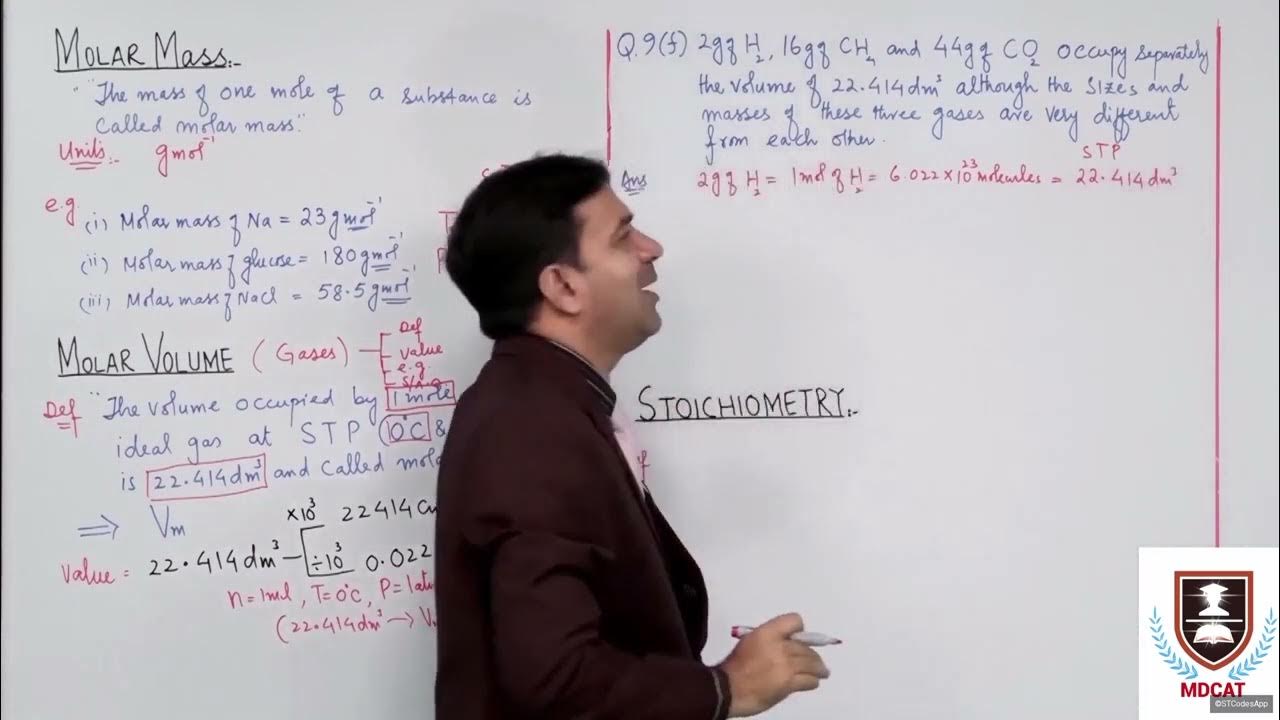 MOLAR MASS:-
"The mass of one mole of a substance is
called molar mass."
Units:- gmol⁻¹
e.g
(i) Molar mass of Na = 23gmol⁻¹
(ii) Molar mass of glucose = 180gmol⁻¹
(iii) Molar mass of NaCl = 58.5gmol⁻¹
MOLAR VOLUME (Gases)
Def
value
e.g.
Def "The volume occupied by 1 mole
ideal gas at STP (0°C &
is 22.414dm³ and called mola
⇒ Vm
×10³ 22414 Cm
Value = 22.414dm³ ÷10³ 0.022
n=1mol, T=0°C, P=1atm
(22.414dm³ → V
Q.9(f) 2g of H₂, 16g of CH₄ and 44g of CO₂ occupy separately
the volume of 22.414dm³ although the sizes and
masses of these three gases are very different
from each other.
STP
Ans 2g of H₂ = 1mol of H₂ = 6.022×10²³ molecules = 22.414dm³
STOICHIOMETRY:-
MDCAT
©STCodesApp